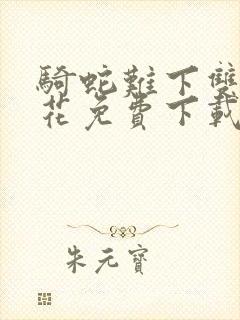 騎蛇難下雙
花免費下載
朱元寶